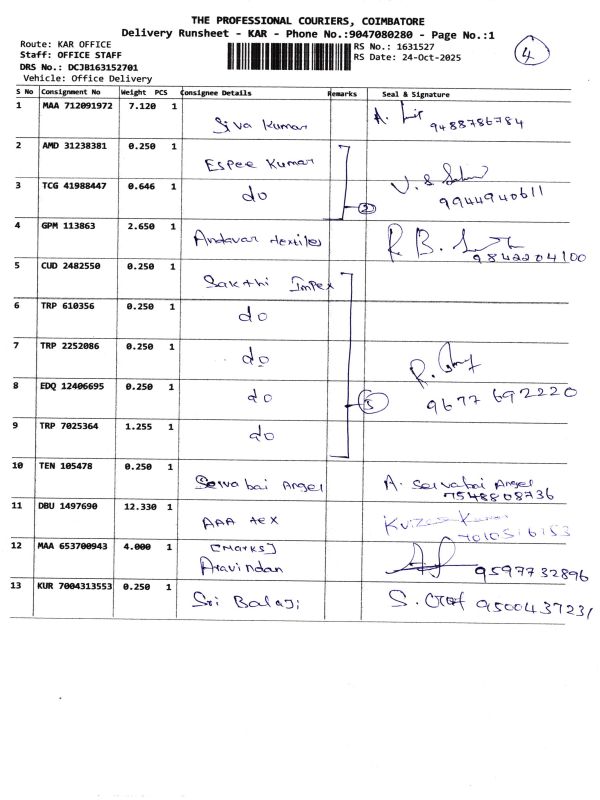 THE PROFESSIONAL COURIERS, COIMBATORE
Delivery Runsheet - KAR - Phone No.:9047080280 - Page No.:1
Route: KAR OFFICE
Staff: OFFICE STAFF
DRS No.: DCJB163152701
Vehicle: Office Delivery
RS No.: 1631527
RS Date: 24-Oct-2025
4
S No Consignment No Weight PCS Consignee Details Remarks Seal & Signature
1 MAA 712091972 7.120 1 Siva Kumar 9488786784
2 AMD 31238381 0.250 1 Espee Kumar
3 TCG 41988447 0.646 1 do 2 9944940611
4 GPM 113863 2.650 1 Andavar textiles 9842204100
5 CUD 2482550 0.250 1 Sakthi Impex
6 TRP 610356 0.250 1 do
7 TRP 2252086 0.250 1 do
8 EDQ 12406695 0.250 1 do 5 9677692220
9 TRP 7025364 1.255 1 do
10 TEN 105478 0.250 1 Selva bai Angel A. Selvabai Angel 7548808736
11 DBU 1497690 12.330 1 AAA tex
12 MAA 653700943 4.000 1 [Marks] Aravindan 9597732896
13 KUR 7004313553 0.250 1 Sri Balaji S. 9500437231